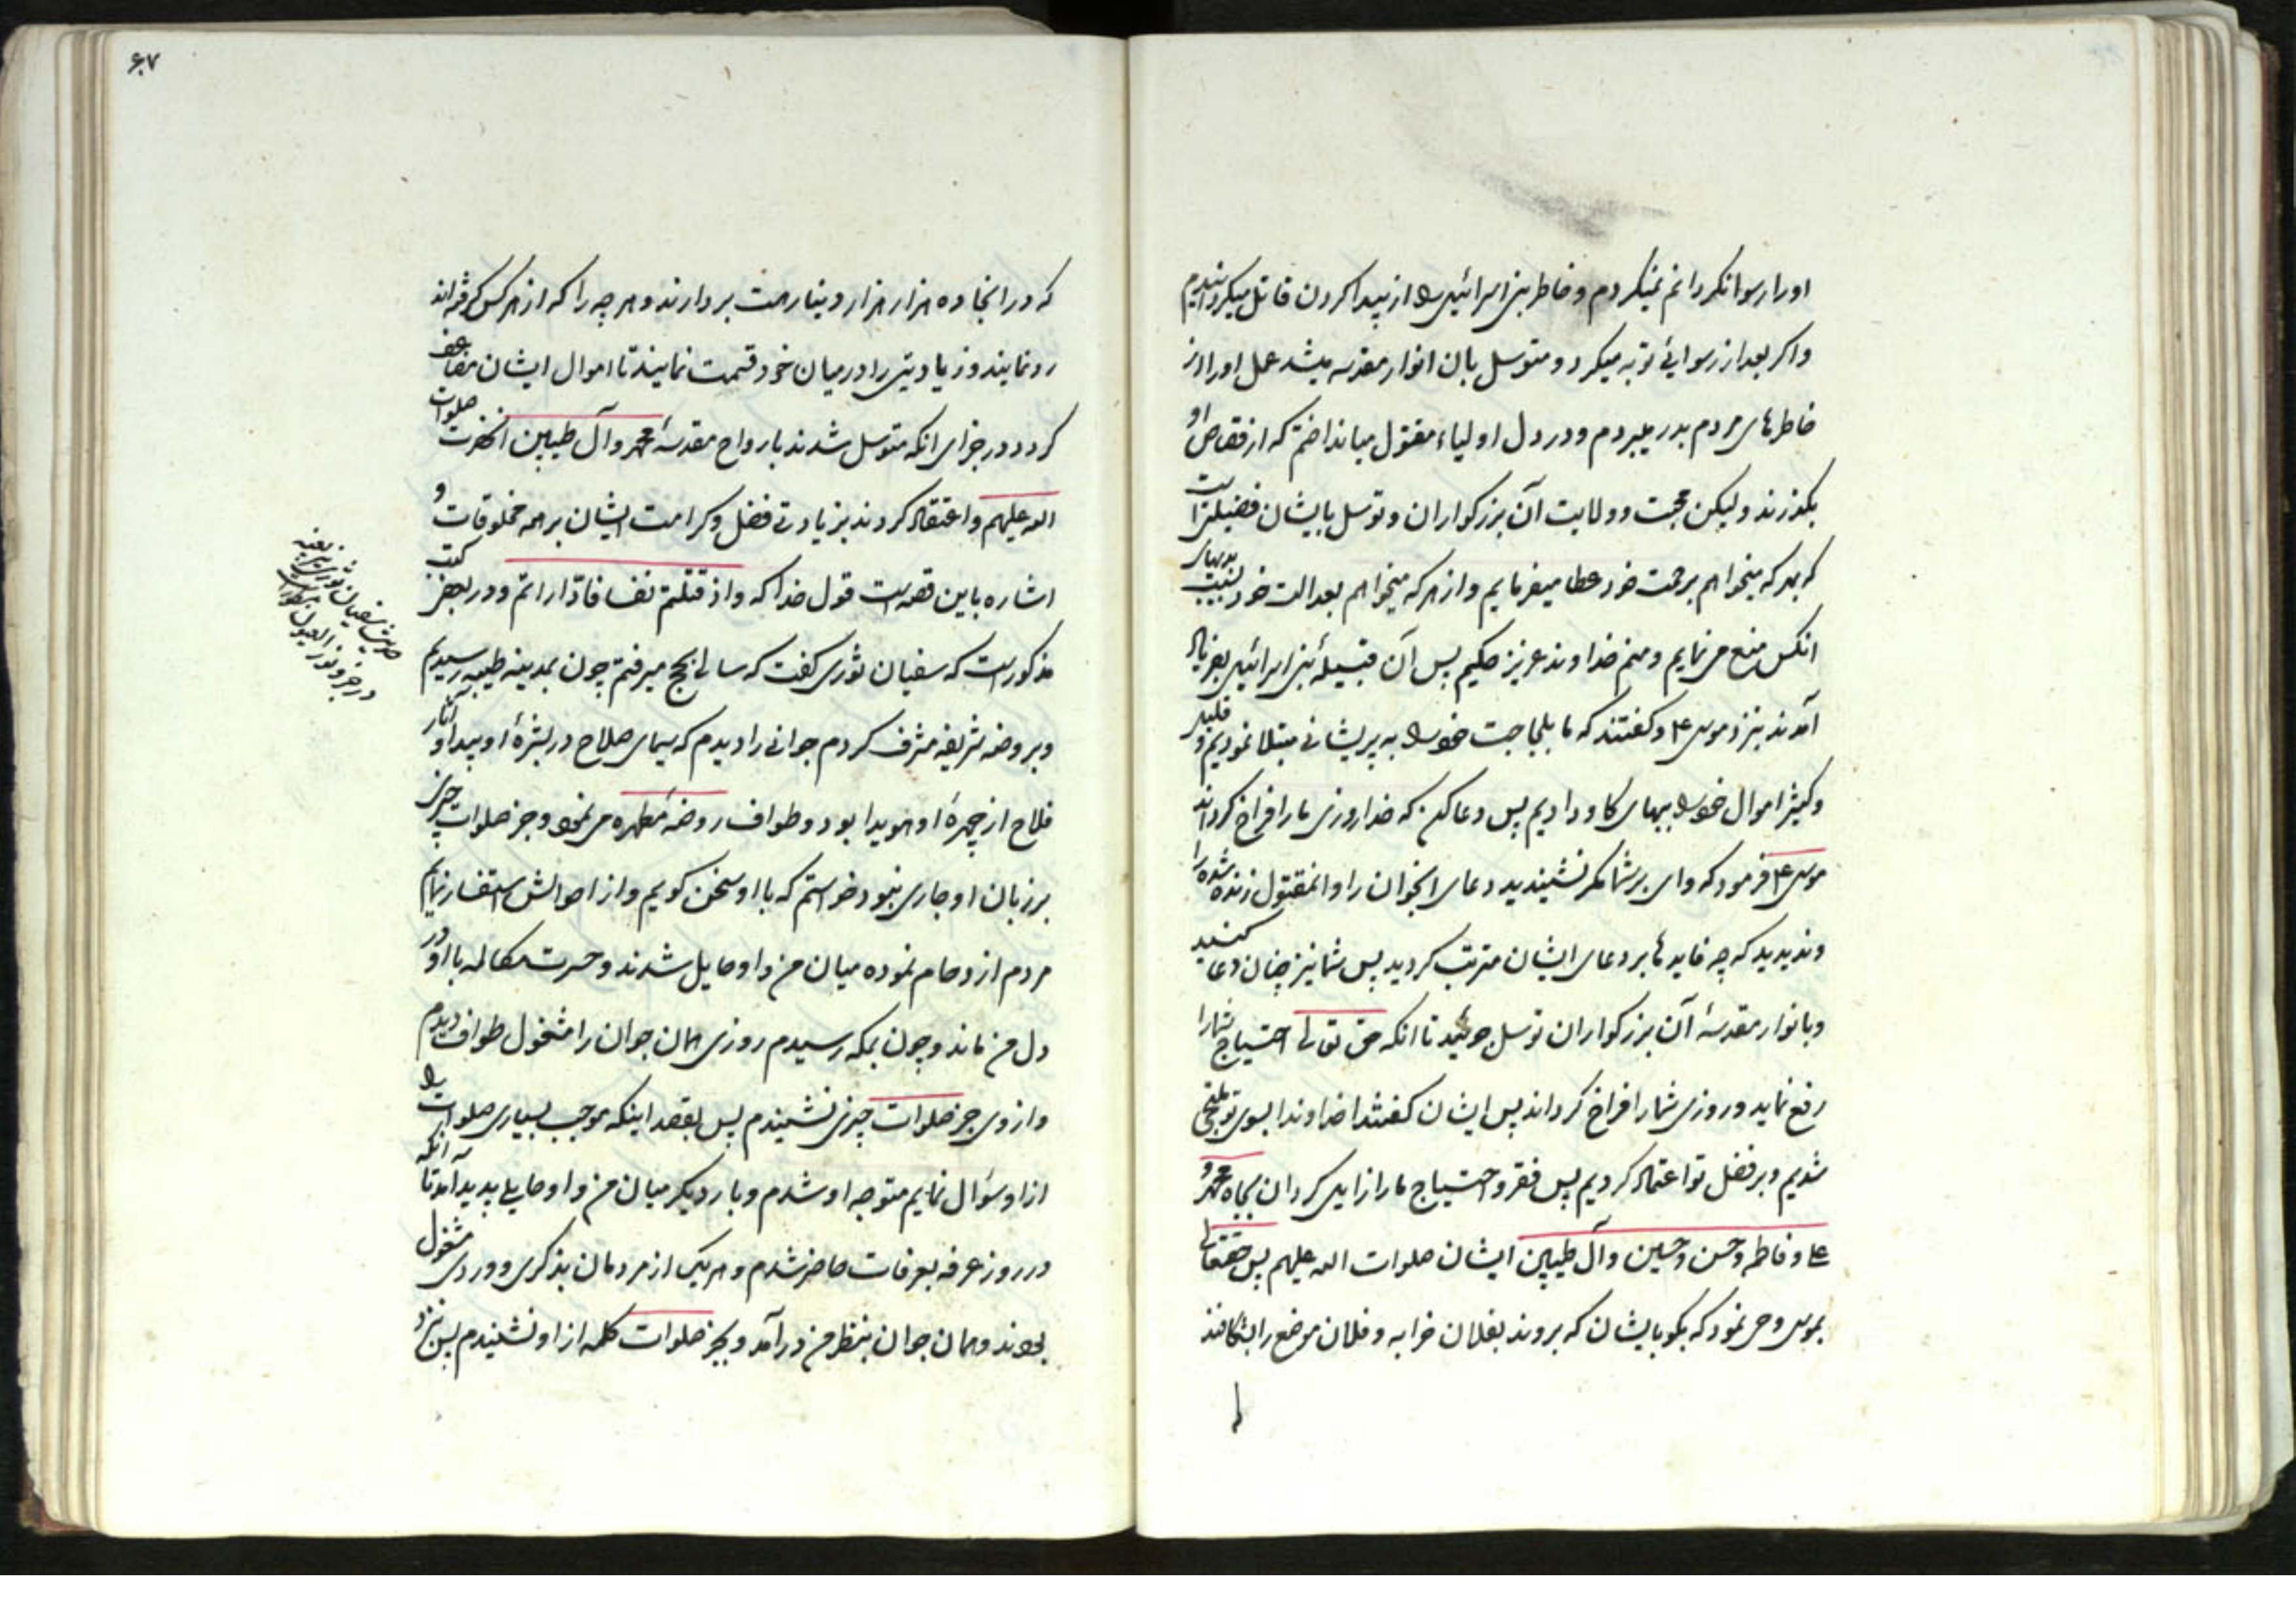 او را رسوا نکردانم نمیکردم و خاطر بنی اسرائیل را از پیدا کردن قاتل میکردانیدم
و اکر بعد از رسوائی توبه میکرد و متوسل بان انوار مقدسه میشد عمل او را از
خاطرهای مردم بدر میبردم و در دل اولیاء مقتول میانداختم که از قصاص او
بکذرند و لیکن محبت و ولایت آن بزرکواران و توسل بایشان فضیلتی است
که بهر که میخواهم برحمت خود عطا میفرمایم و از هر که میخواهم بعدالت خود بسبب
انکس منع می نمایم و منم خداوند عزیز حکیم پس آن قبیلهٔ بنی اسرائیل بفریاد
آمدند بنزد موسی ع و کفتند که ما بلجاجت خود را به پریشانی مبتلا نمودیم و قلیل
و کثیر اموال خود را ببهای کاو دادیم پس دعا کن که خدا روزی ما را فراخ کرداند
موسی ع فرمود که وای بر شما مکر نشنیدید دعای انجوان را و انمقتول زنده شده را
و ندیدید که چه فایدها بر دعای ایشان مترتب کردید پس شما نیز چنان دعا کنید
و بانوار مقدسهٔ آن بزرکواران توسل جوئید تا انکه حق تعالی احتیاج شما را
رفع نماید و روزی شما را فراخ کرداند پس ایشان کفتند خداوندا بسوی تو ملتجی
شدیم و بر فضل تو اعتماد کردیم پس فقر و احتیاج ما را زایل کردان بجاه محمد و
علی و فاطمه و حسن و حسین و آل طیبین ایشان صلوات الله علیهم پس حقتعالی
بموسی وحی نمود که بکو بایشان که بروند بفلان خرابه و فلان موضع را بشکافند
که در انجا ده هزار هزار دینار هست بردارند و هر چه را که از هر کس کرفته‌اند
رد نمایند و زیادیتی را در میان خود قسمت نمایند تا اموال ایشان مضاعف
کردد در جزای انکه متوسل شدند بارواح مقدسهٔ محمد و آل طیبین انحضرت صلوات
الله علیهم و اعتقاد کردند بزیادتی فضل و کرامت ایشان بر همه مخلوقات و
اشاره باین قصه است قول خدا که و اذ قتلتم نفسا فادّاراتم و در بعض کتب
مذکور است که سفیان ثوری کفت که سالی بحج میرفتم چون بمدینه طیبه رسیدیم
و بروضه شریفه مشرف کردم جوانی را دیدم که سیمای صلاح در بشرهٔ او پیدا و آثار
فلاح از چهرهٔ او هویدا بود و طواف روضهٔ مطهره می نمود و جز صلوات چیزی
بر زبان او جاری نبود خواستم که با او سخن کویم و از احوالش استفسار نمایم
مردم ازدحام نموده میان من و او حایل شدند و حسرت مکالمه با او در
دل من ماند و چون بمکه رسیدم روزی همان جوان را مشغول طواف دیدم
و از وی جز صلوات چیزی نشنیدم پس بقصد اینکه موجب بسیاری صلوات را
از او سؤال نمایم متوجه او شدم و بار دیکر میان من و او حایلی پدید آمد تا انکه
در روز عرفه بعرفات حاضر شدم و هر یک از مردمان بذکری و وردی مشغول
بودند و همان جوان بنظر من در آمد و بجز صلوات کلمه از او نشنیدم پس نزد
۶۷